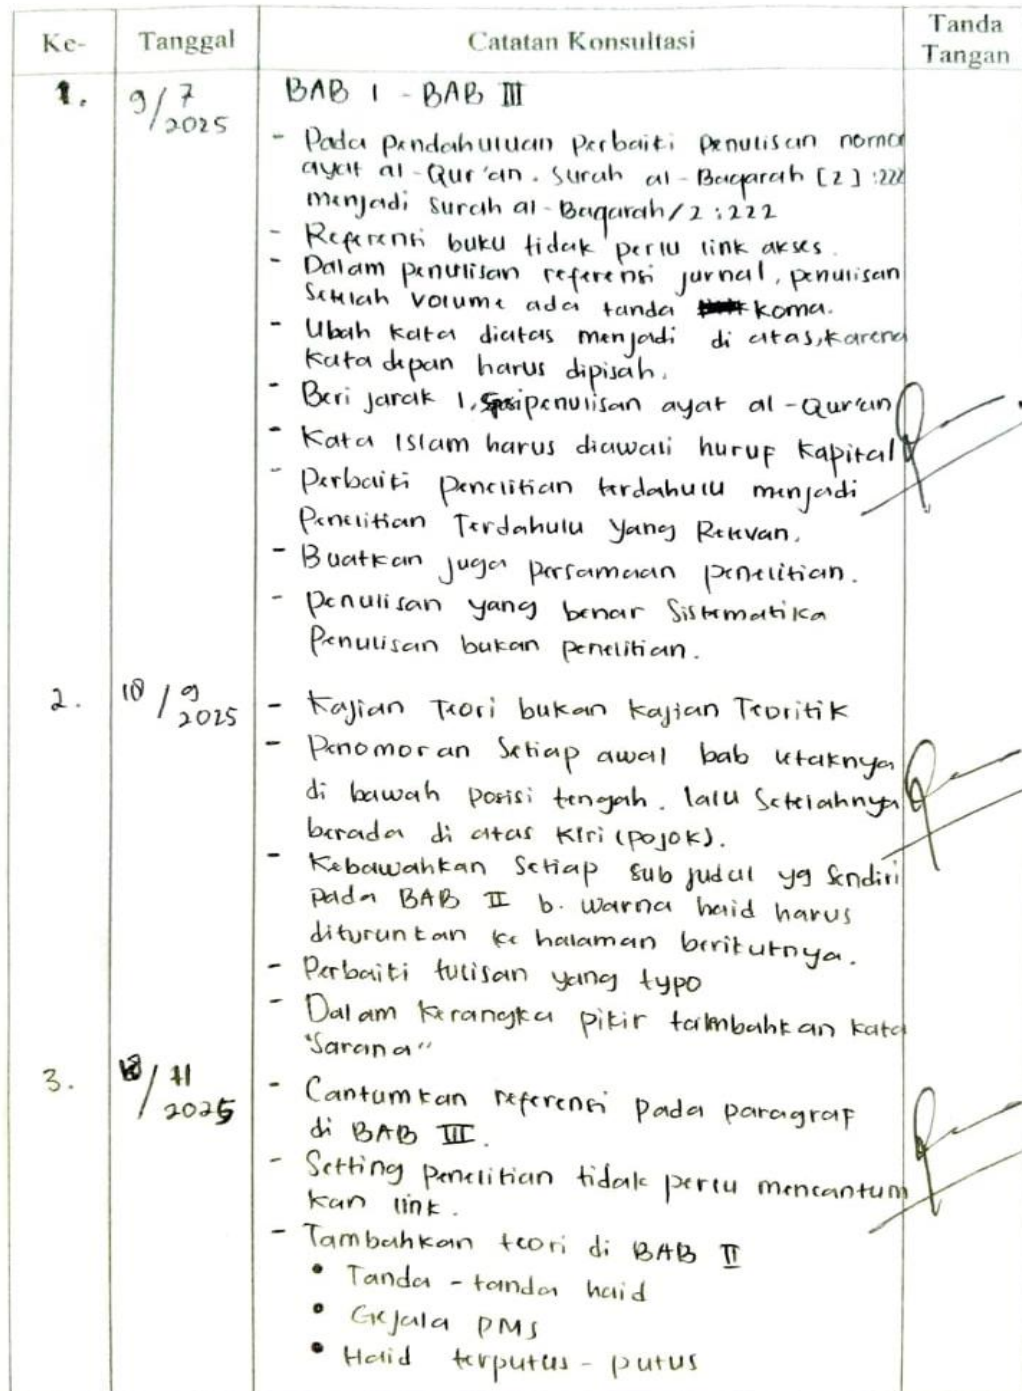 Ke- Tanggal Catatan Konsultasi Tanda Tangan
1. 9/7 2025 BAB I - BAB III
- Pada pendahuluan perbaiki penulisan nomor
ayat al-Qur'an. Surah al-Baqarah [2]:222
menjadi surah al-Baqarah/2:222
- Referensi buku tidak perlu link akses.
- Dalam penulisan referensi jurnal, penulisan
setelah volume ada tanda koma.
- Ubah kata diatas menjadi di atas, karena
kata depan harus dipisah.
- Beri jarak 1, spasi penulisan ayat al-Qur'an
- Kata Islam harus diawali huruf kapital
- Perbaiki penelitian terdahulu menjadi
Penelitian Terdahulu Yang Relevan.
- Buatkan juga persamaan penelitian.
- penulisan yang benar Sistematika
Penulisan bukan penelitian.
2. 18/9 2025 - Kajian Teori bukan kajian Teoritik
- Penomoran Setiap awal bab letaknya
di bawah posisi tengah. lalu Setelahnya
berada di atas kiri (pojok).
- Kebawahkan Setiap sub judul yg sendiri
pada BAB II b. warna haid harus
diturunkan ke halaman berikutnya.
- Perbaiki tulisan yang typo
- Dalam kerangka pikir tambahkan kata
"Sarana"
3. /11 2025 - Cantumkan referensi pada paragraf
di BAB III.
- Setting penelitian tidak perlu mencantum
kan link.
- Tambahkan teori di BAB II
• Tanda-tanda haid
• Gejala PMS
• Haid terputus-putus